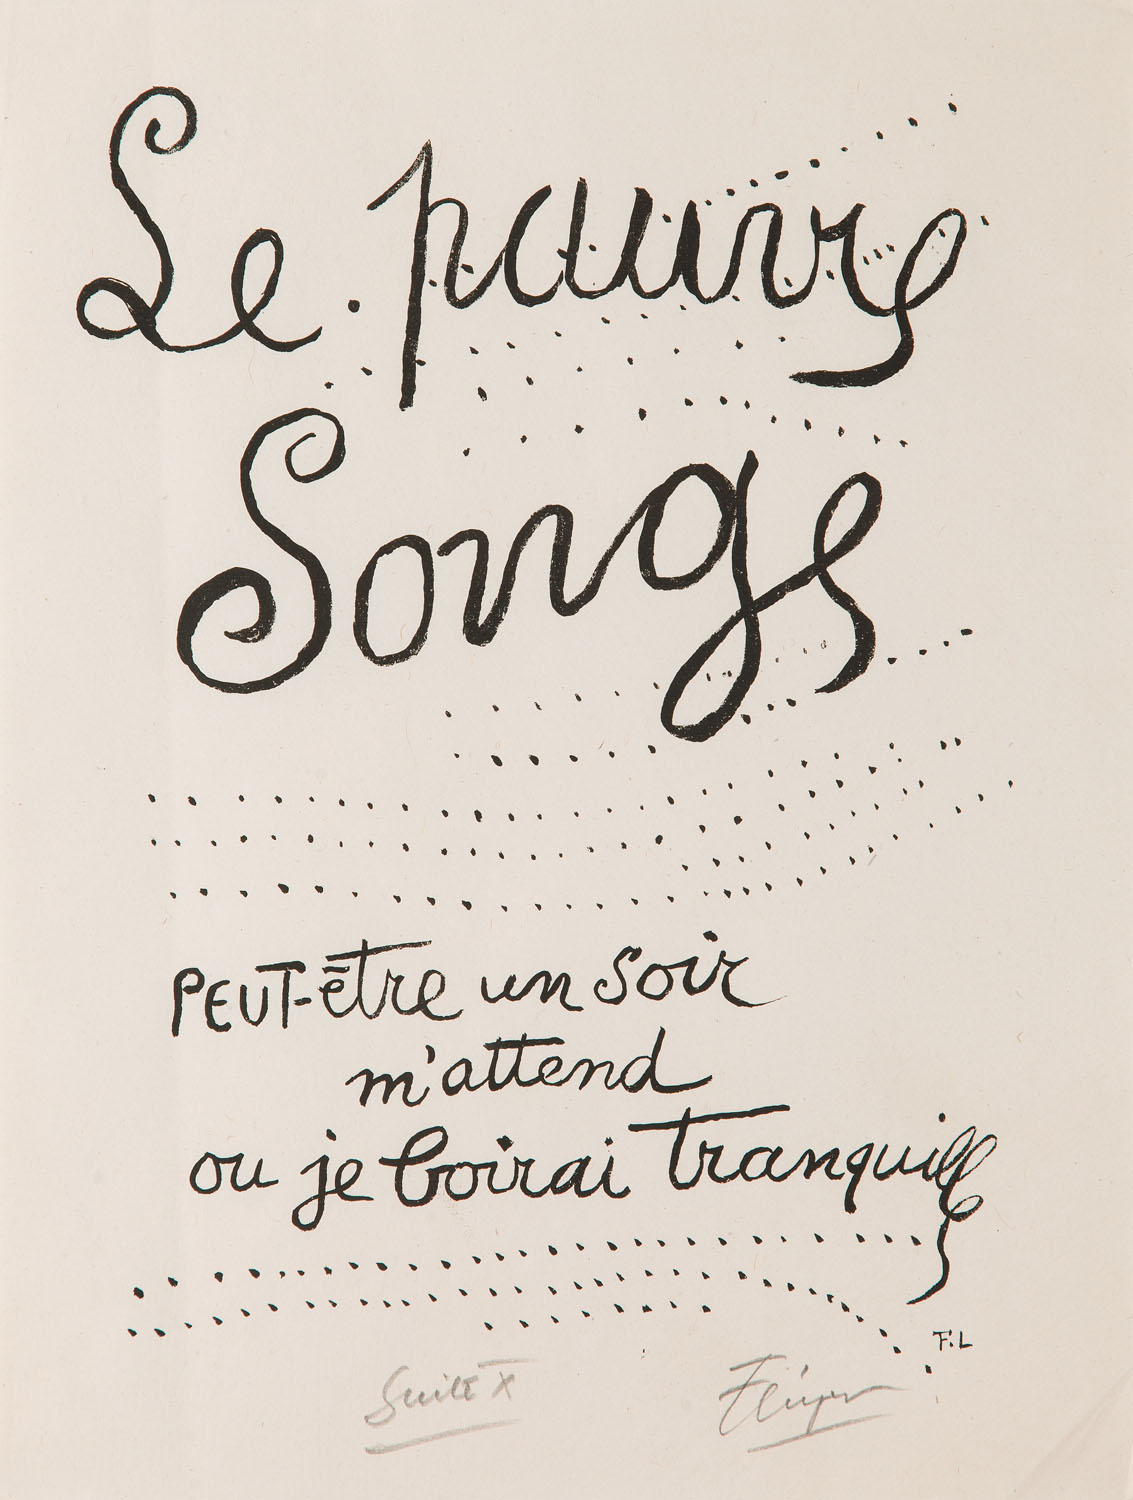 Le pauvre
Songe
PEUT-être un soir
m'attend
ou je boirai tranquille
F.L
Suite X
F Léger